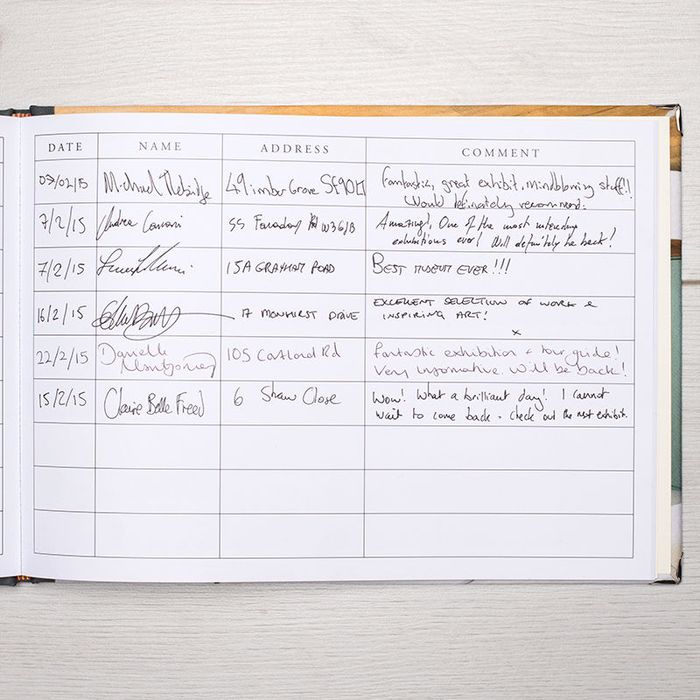 DATE NAME ADDRESS COMMENT
07/02/15 Michael 49 imber Grove Fantastic, great exhibit, mindblowing stuff!!
Would definately recommend.
7/2/15 Andrea 55 Faraday Rd Amazing!, One of the most interesting
exhibitions ever! Will definitely be back!
7/2/15 15A GRAYHAM ROAD BEST MUSEUM EVER!!!
16/2/15 17 DRIVE EXCELLENT SELECTION OF WORK &
INSPIRING ART!
x
22/2/15 Danielle 105 Rd fantastic exhibition + tour guide!
Montgomery Very informative. Will be back!
15/2/15 Claire Belle Freed 6 Shaw Close Wow! What a brilliant day! I cannot
wait to come back - check out the next exhibit.